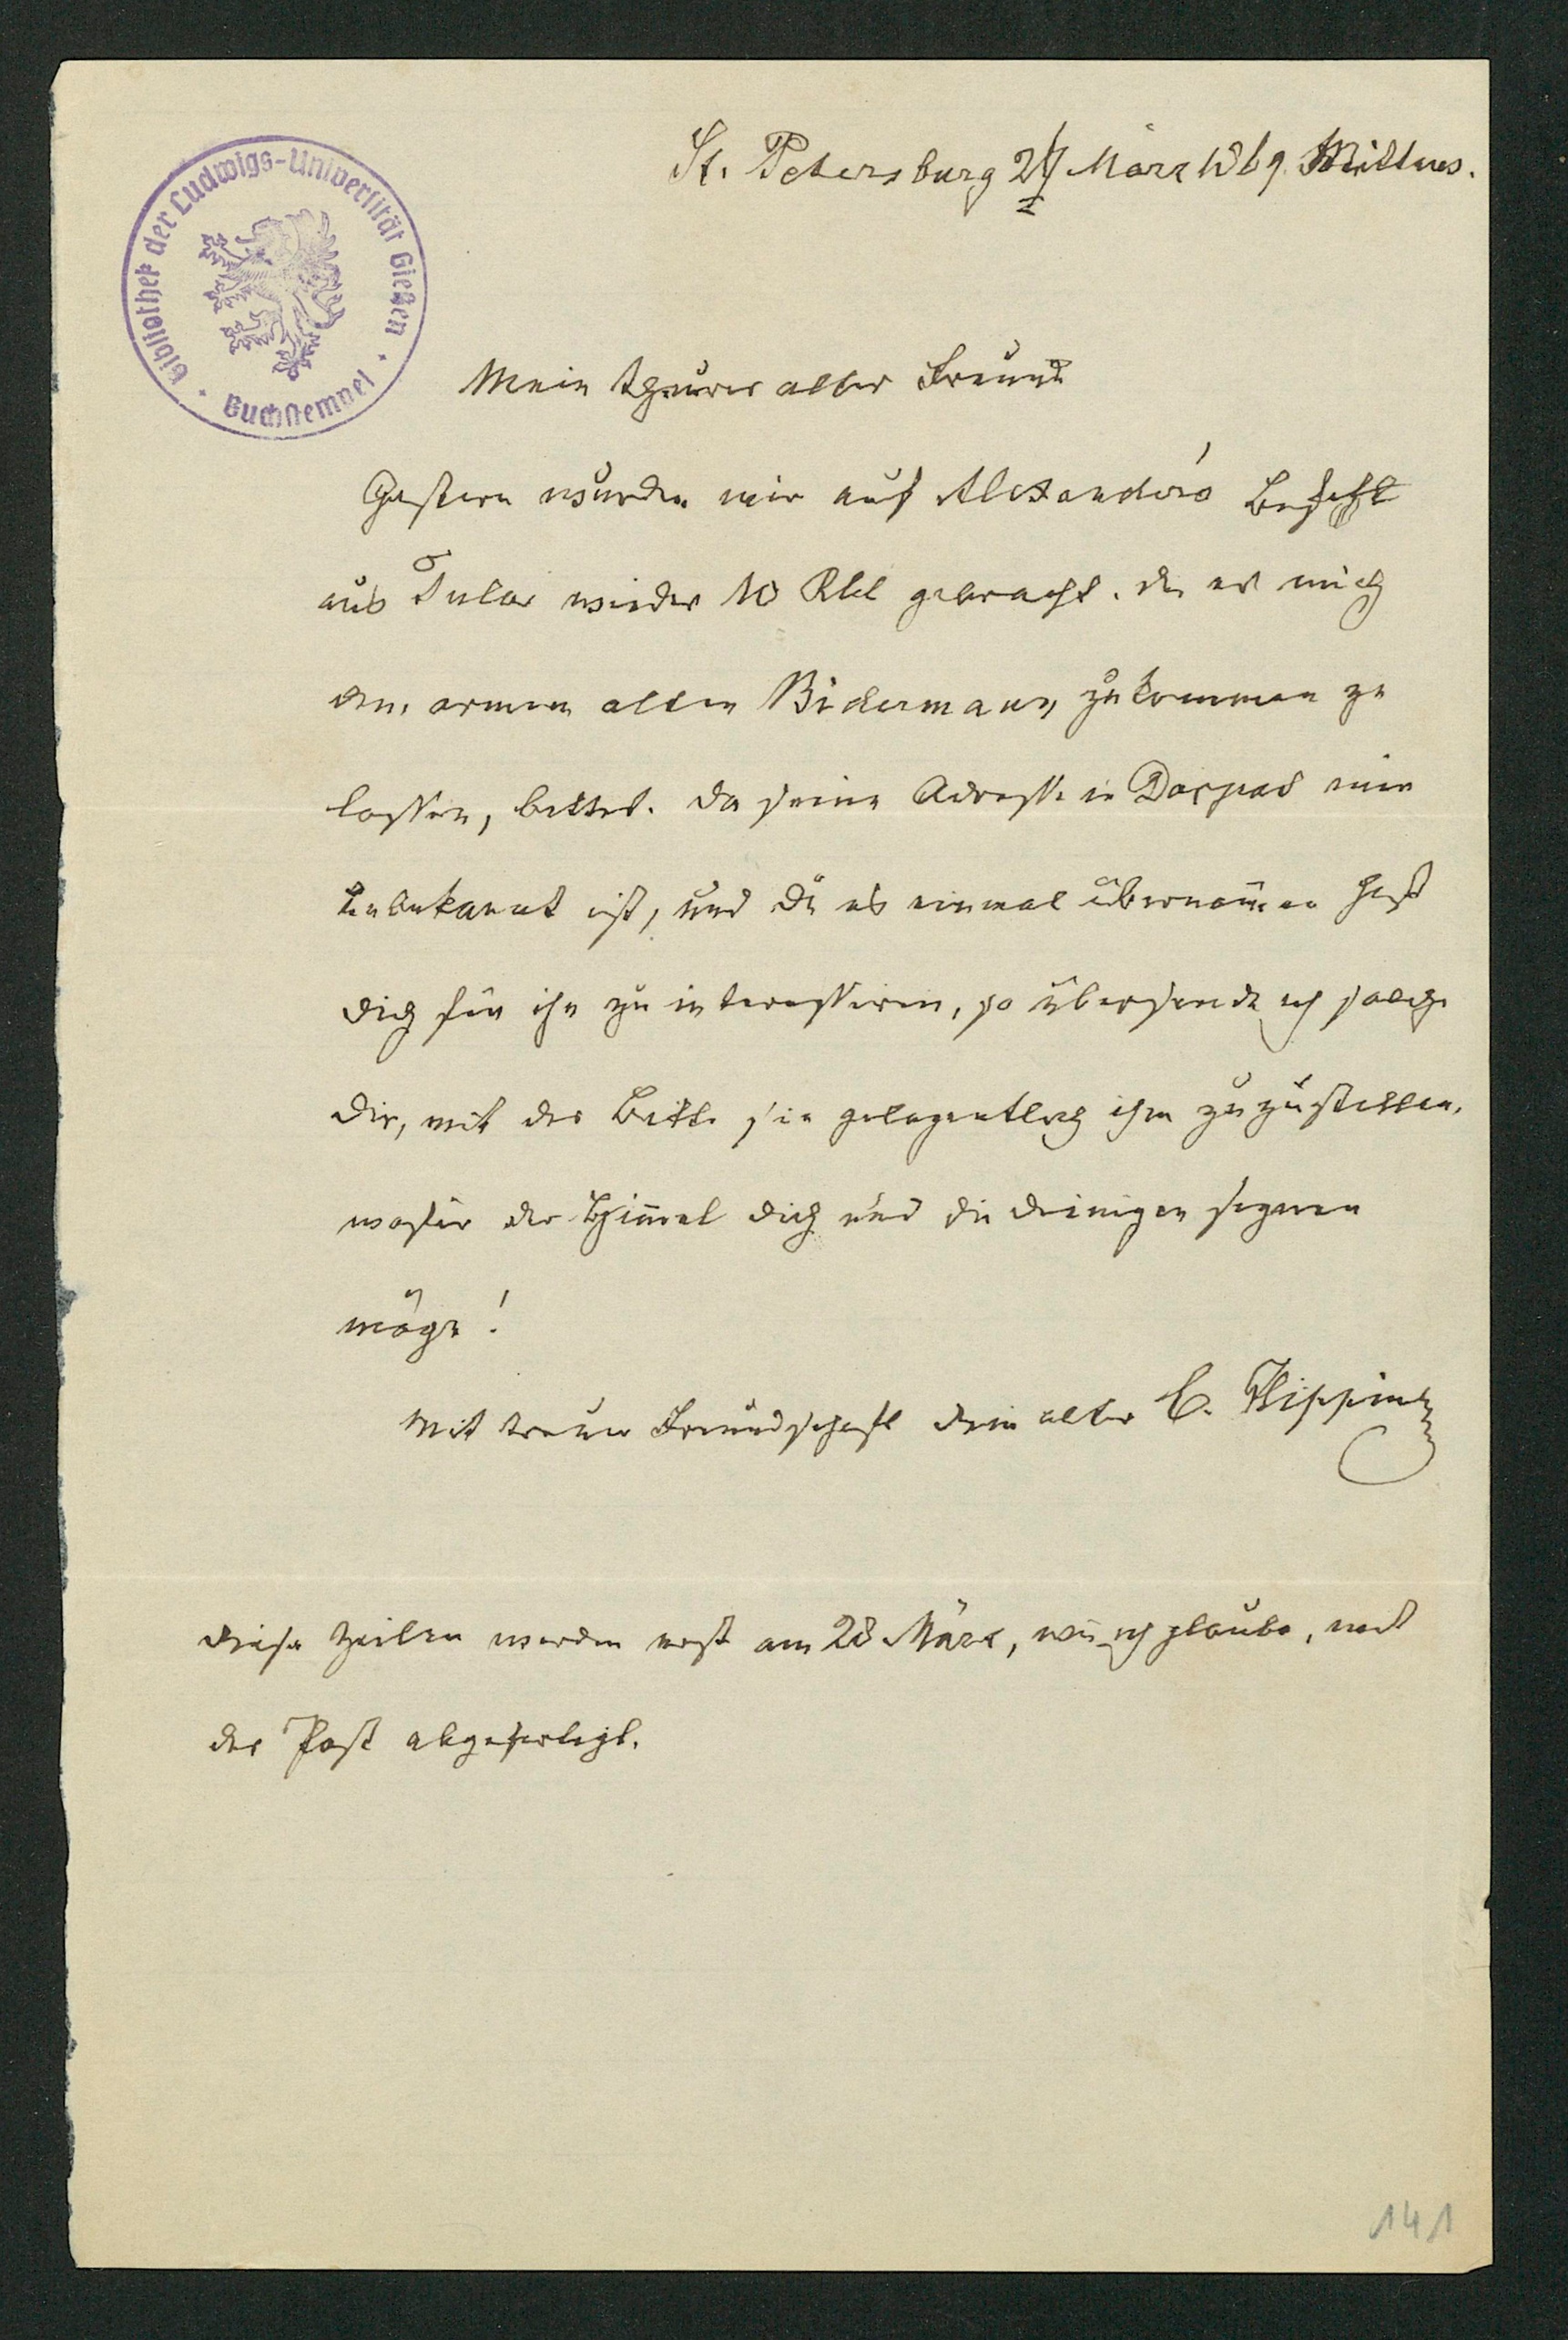 St. Petersburg 27 März 1869. Mittws.
Bibliothek der Ludwigs-Universität Gießen
Buchstempel
Mein theurer alter Freund
Gestern wurden mir auf Alexander's Befehl
aus Tula wieder 10 Rbl gebracht, die er mich
dem armen alten Bidermann zukommen zu
lassen, bittet. Da seine Adresse in Dorpat mir
unbekannt ist, und Du es einmal übernom̄en hast
Dich für ihn zu interessiren, so übersende ich solche
Dir, mit der Bitte sie gelegentlich ihm zuzustellen,
wofür der Him̄el Dich und die Deinigen segnen
möge!
Mit treuer Freundschaft Dein alter C. Hipping
Diese Zeilen werden erst am 28 März, wie ich glaube, mit
der Post abgefertigt.
141